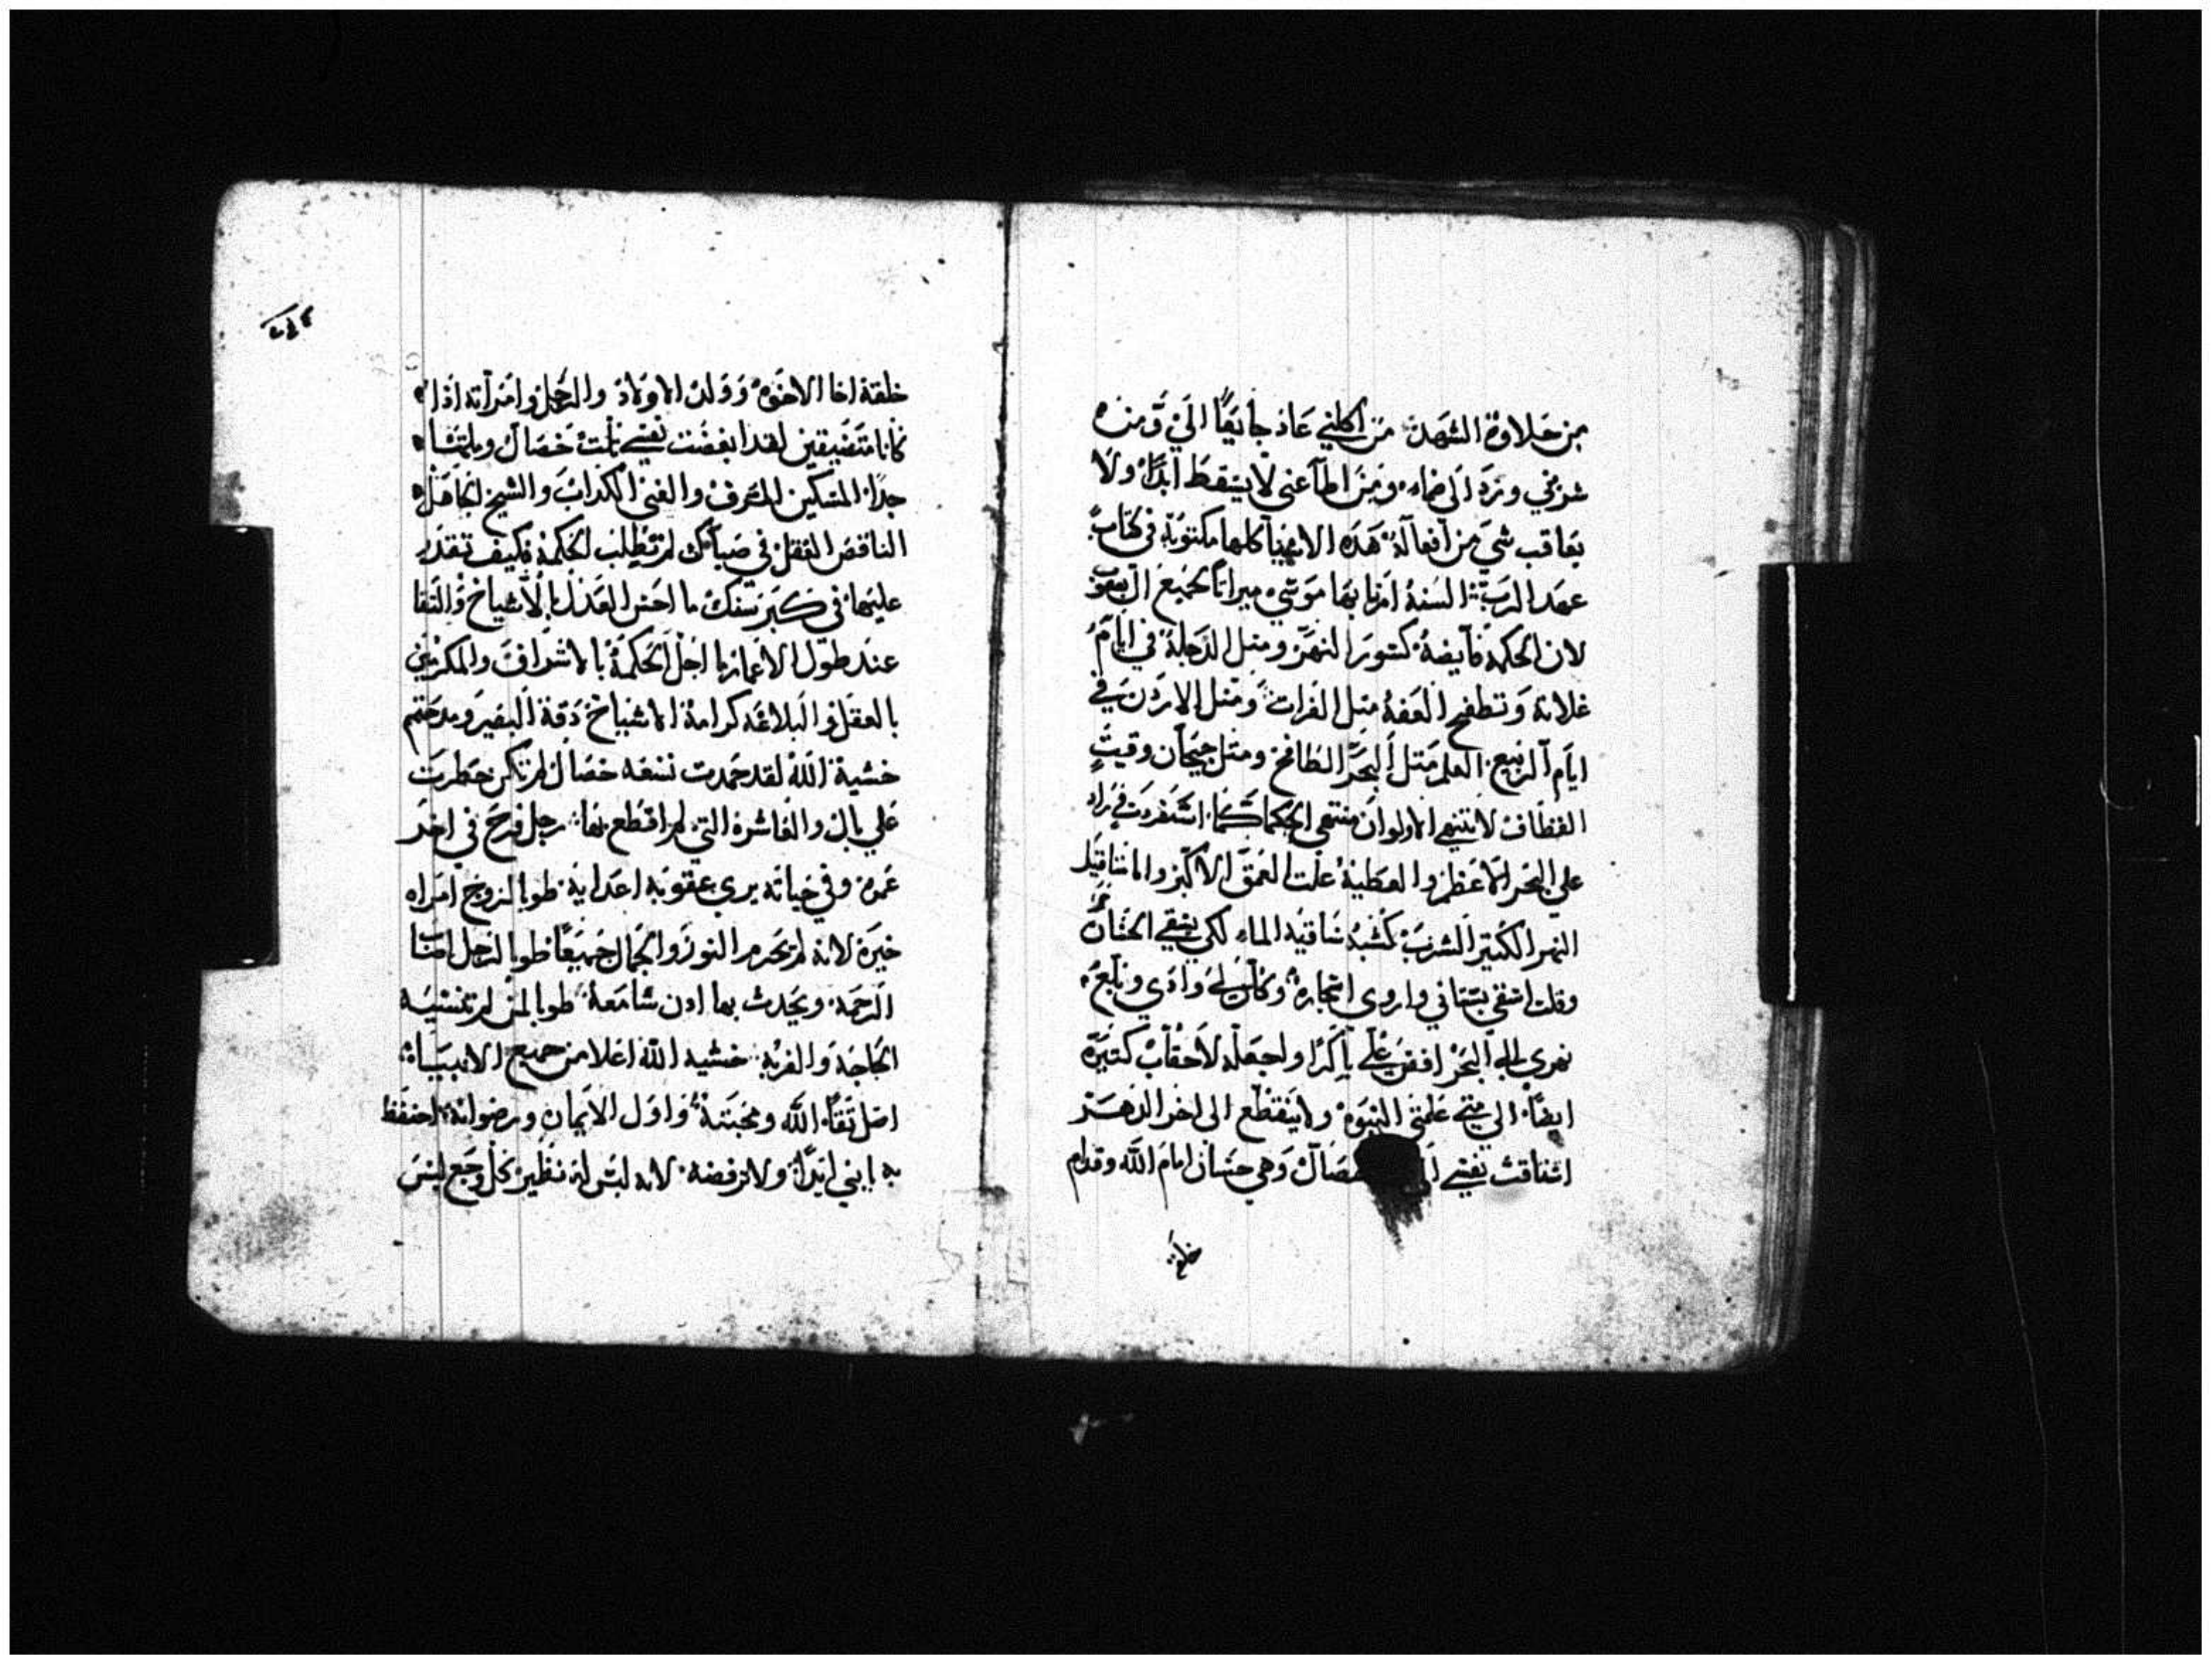 من حلاوة الشهد من اكلني عاد جايعًا اليّ ومن
شربني ورد الي ضماء ومن اطاعني لا يسقط ابدًا ولا
يعاقب شي من افعاله هذه الاشيا كلها مكتوبة في كتاب
عهد الرب السنة امرنا بها موسي ميراثًا لجميع ال يعقوب
لان الحكمة فايضة كتور النهر ومثل الدجلة في ايام
غلاته وتطفح العفة مثل الفرات ومثل الاردن في
ايام الربيع العلم مثل البحر الطافح ومثل جيحان وقيت
القطاف لا تنتهي الاولوان منتهي الحكما كما استفردت في
علي البحر الاعظم والعطية علت العمق الاكبر وانا
النهر الكثير الشرب كشبه ساقية الماء لكي يسقي الجنان
وقلت اسقي بستاني واروي اشجاره وكان لي وادي
نهري الي البحر افض علي باكرًا واجعله لاحقاب كتيرة
ايضًا الي متي علمتي النبوة ولا ينقطع الى اخر الدهر
اشتاقت نفسي خصال وهي حسان امام الله وقدام
خلقة
خلقة اخا الاخوة وولد الاولاد والرجل وامراته اذا
كانا متفقين لقد ابغضت نفسي تلت خصال وبلمتنا
جدًا المسكين المسرف والغني الكداب والشيخ الجاهل
الناقص العقل في صباك لم تطلب الحكمة فكيف تقدر
عليها في كبر سنك ما احسن العدل بالاشياخ والتقا
عند طول الاعمار ما اجل الحكمة بالاشراف والمكرمين
بالعقل والبلاغه كرامة الاشياخ دقة البصر ومدحتهم
خشية الله لقد حمدت تسعه خصال لم تكن خطرت
علي بال والعاشرة التي لم اقطع بها رجل فرح في اخر
عمره وفي حياته يري عقوبة اعدايه طوبا لزوج امراه
خيرة لانه لم يحرم النور والجمال جميعًا طوبا لرجل اصاب
الرحمه ويحدث بها ادن سامعة طوبا لمن لم تنسيه
الحاجة والغربة خشيه الله اعلا من جميع الاشياء
اصل تقاء الله ومحبته واول الايمان ورضوانه احفظ
به يابني ابدًا ولا ترفضه لانه ليس له نظير كل وجع ليس